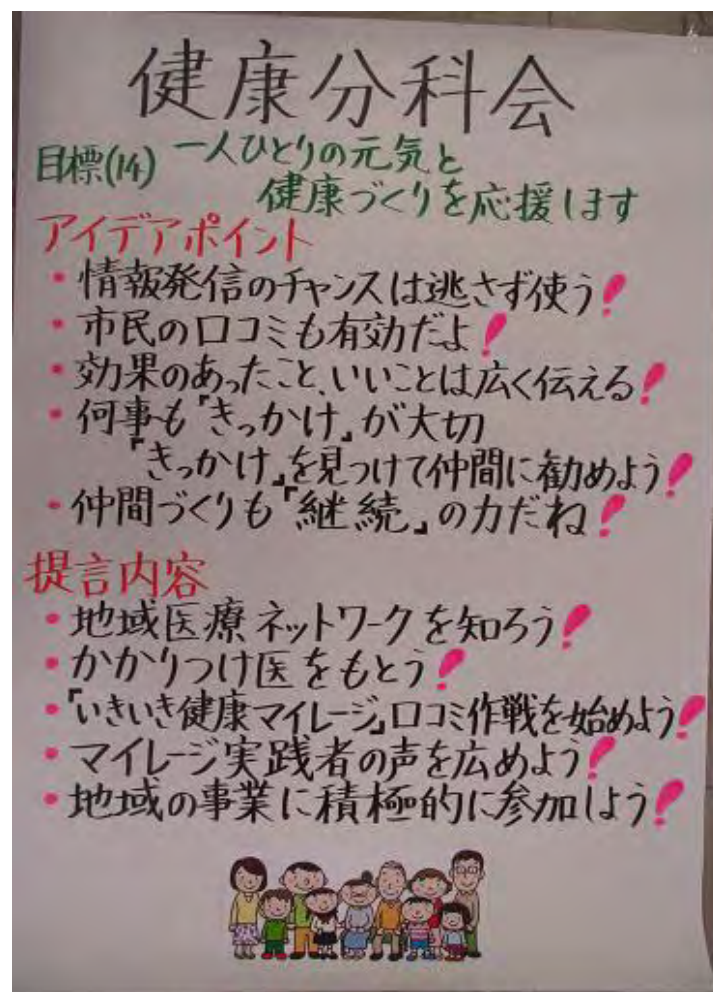 健康分科会
目標(14) 一人ひとりの元気と
健康づくりを応援します
アイデアポイント
・情報発信のチャンスは逃さず使う!
・市民の口コミも有効だよ!
・効果のあったこと、いいことは広く伝える!
・何事も「きっかけ」が大切
「きっかけ」を見つけて仲間に勧めよう!
・仲間づくりも「継続」の力だね!
提言内容
・地域医療ネットワークを知ろう!
・かかりつけ医をもとう!
・「いきいき健康マイレージ」口コミ作戦を始めよう!
・マイレージ実践者の声を広めよう!
・地域の事業に積極的に参加しよう!